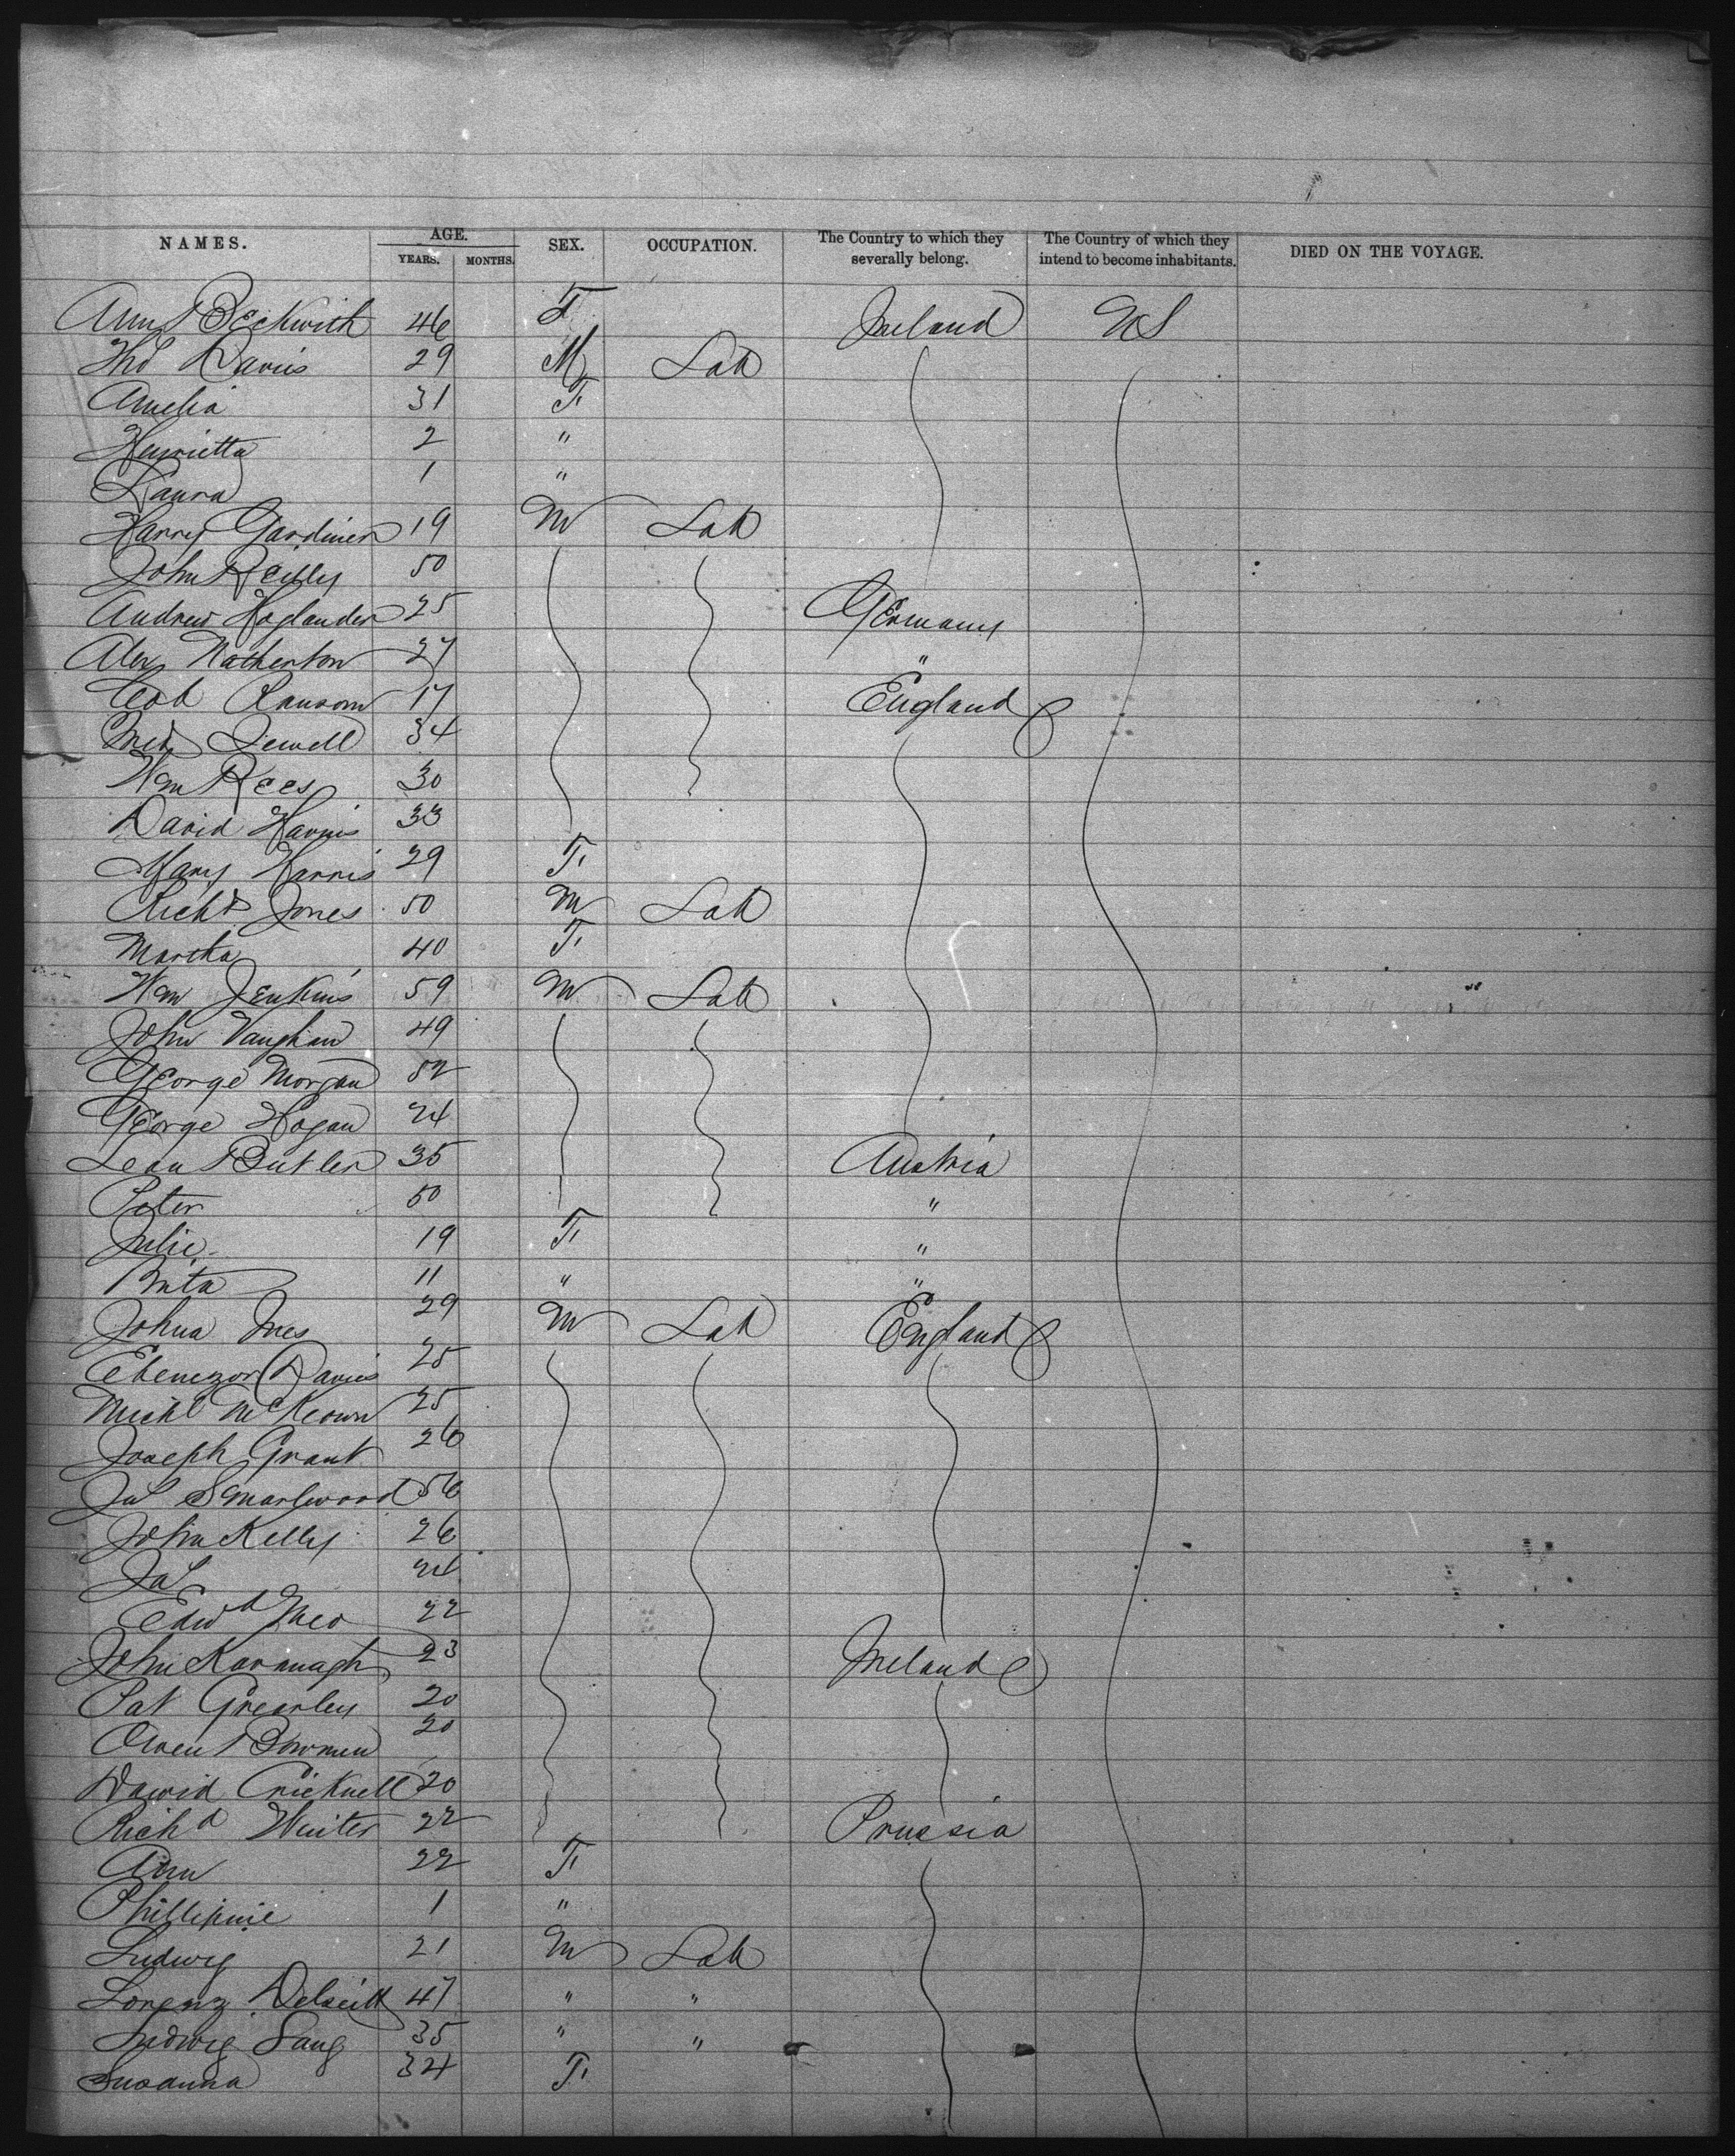 NAMES. AGE. SEX. OCCUPATION. The Country to which they severally belong. The Country of which they intend to become inhabitants. DIED ON THE VOYAGE.
YEARS. MONTHS.
Ann Beckwith 46 F Ireland US
Tho Davis 29 M Lab
Amelia 31 F
Henrietta 2 "
Laura 1 "
Harry Gardiner 19 M Lab
John Reilly 50
Andrew Hoglander 25 Germany
Alex Natherton 27 "
Ransom 17 England
Fred Sewell 34
Wm Rees 30
David Harris 33
Mary Harris 29 F
Richd Jones 50 M Lab
Martha 40 F
Wm Jenkins 59 M Lab
John Vaughan 49
George Morgan 52
George Hogan 24
Butler 35 Austria
Peter 50 "
Julie 19 F "
11 " "
29 M Lab England
Ebenezor Davies 25
Michl McKeown 25
Joseph Grant 26
Jas 56
John Kelly 26
Jas 24
Edwd 22
John Kavanagh 23 Ireland
Pat Grearley 20
Owen Bowmen 20
Dawid Cricknell 20
Richd Winter 22 Prussia
Ann 22 F
Phillipine 1 "
Ludwig 21 M Lab
Lorenz 47 " "
Ludwig Lang 35 " "
Susanna 34 F